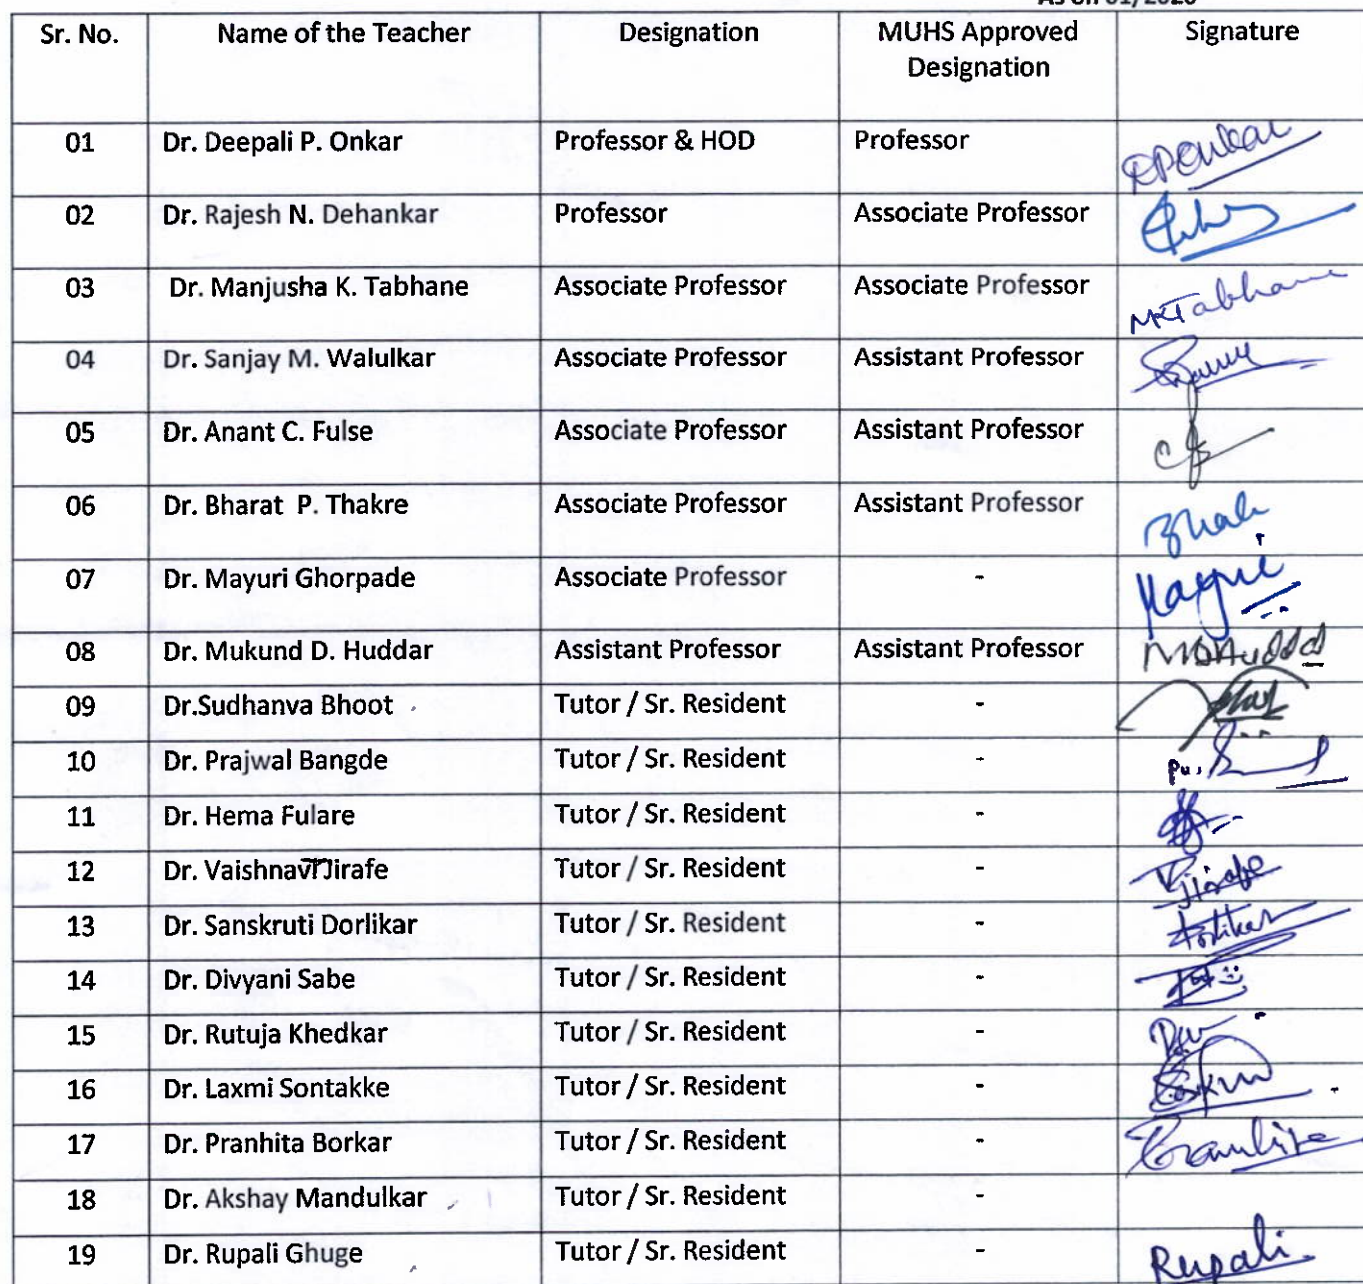 As on 01/2020
Sr. No. Name of the Teacher Designation MUHS Approved Signature
Designation
01 Dr. Deepali P. Onkar Professor & HOD Professor DPOnkar
02 Dr. Rajesh N. Dehankar Professor Associate Professor
03 Dr. Manjusha K. Tabhane Associate Professor Associate Professor MKTabhane
04 Dr. Sanjay M. Walulkar Associate Professor Assistant Professor
05 Dr. Anant C. Fulse Associate Professor Assistant Professor
06 Dr. Bharat P. Thakre Associate Professor Assistant Professor
07 Dr. Mayuri Ghorpade Associate Professor -
08 Dr. Mukund D. Huddar Assistant Professor Assistant Professor
09 Dr.Sudhanva Bhoot Tutor / Sr. Resident -
10 Dr. Prajwal Bangde Tutor / Sr. Resident -
11 Dr. Hema Fulare Tutor / Sr. Resident -
12 Dr. Vaishnavi Jirafe Tutor / Sr. Resident - Jirafe
13 Dr. Sanskruti Dorlikar Tutor / Sr. Resident -
14 Dr. Divyani Sabe Tutor / Sr. Resident -
15 Dr. Rutuja Khedkar Tutor / Sr. Resident -
16 Dr. Laxmi Sontakke Tutor / Sr. Resident -
17 Dr. Pranhita Borkar Tutor / Sr. Resident - Pranhita
18 Dr. Akshay Mandulkar Tutor / Sr. Resident -
19 Dr. Rupali Ghuge Tutor / Sr. Resident - Rupali